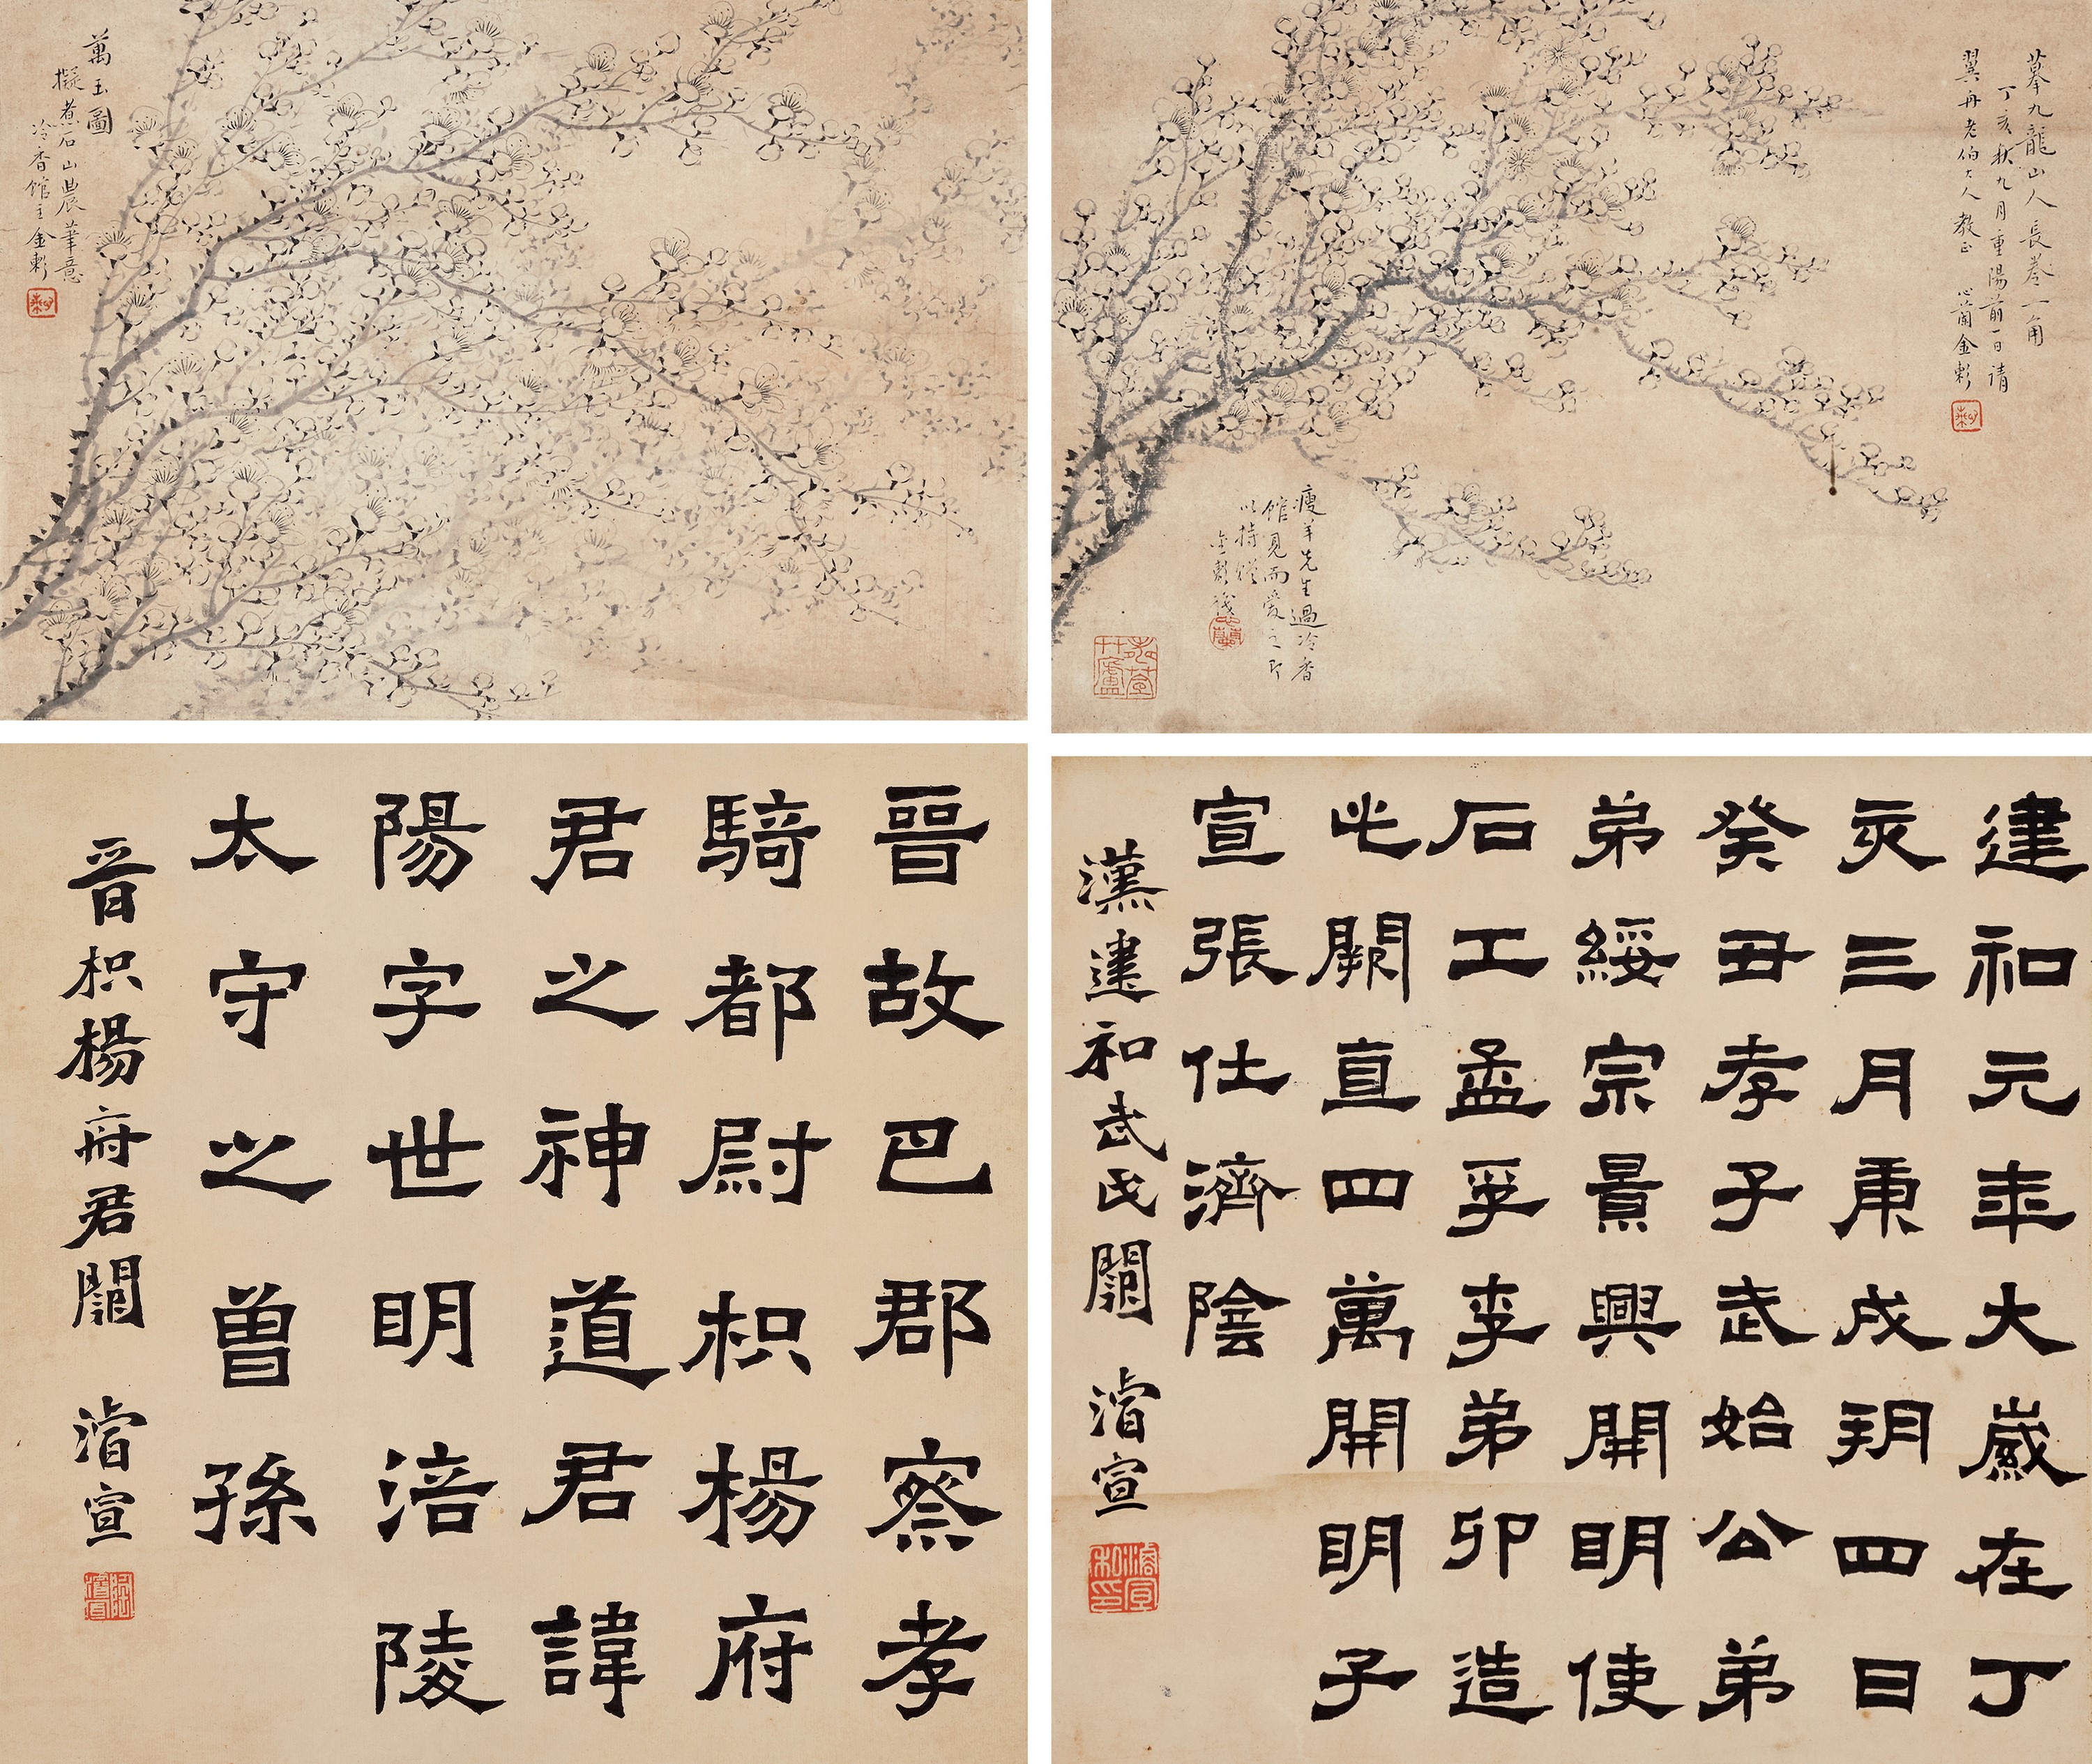 萬玉圖
擬煮石山農筆意
冷香館主金
摹九龍山人長卷一角
丁亥秋九月重陽前一日請
翼舟老伯大人教正 心蘭金
瘦羊先生過冷香
館見而愛之即
以持贈
金
晉故巴郡察孝
騎都尉枳楊府
君之神道君諱
陽字世明涪陵
太守之曾孫
晉枳楊府君闕 濬宣
建和元年大歲在丁
亥三月庚戌朔四日
癸丑孝子武始公弟
弟綏宗景興開明使
石工孟孚李弟卯造
此闕直四萬開明子
宣張仕濟陰
漢建和武氏闕 濬宣
濬宣私印